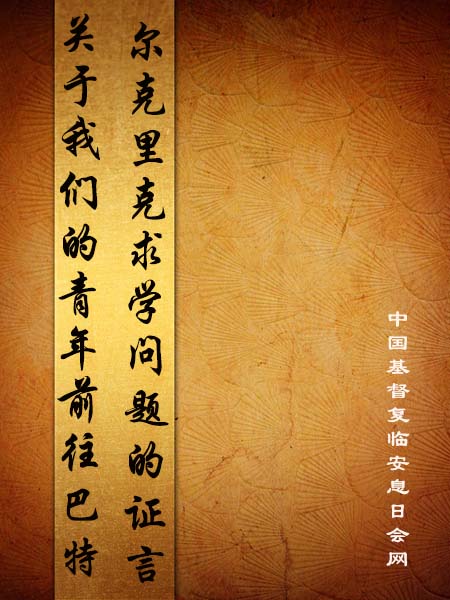 关于我们的青年前往巴特
尔克里克求学问题的证言
中国基督复临安息日会网